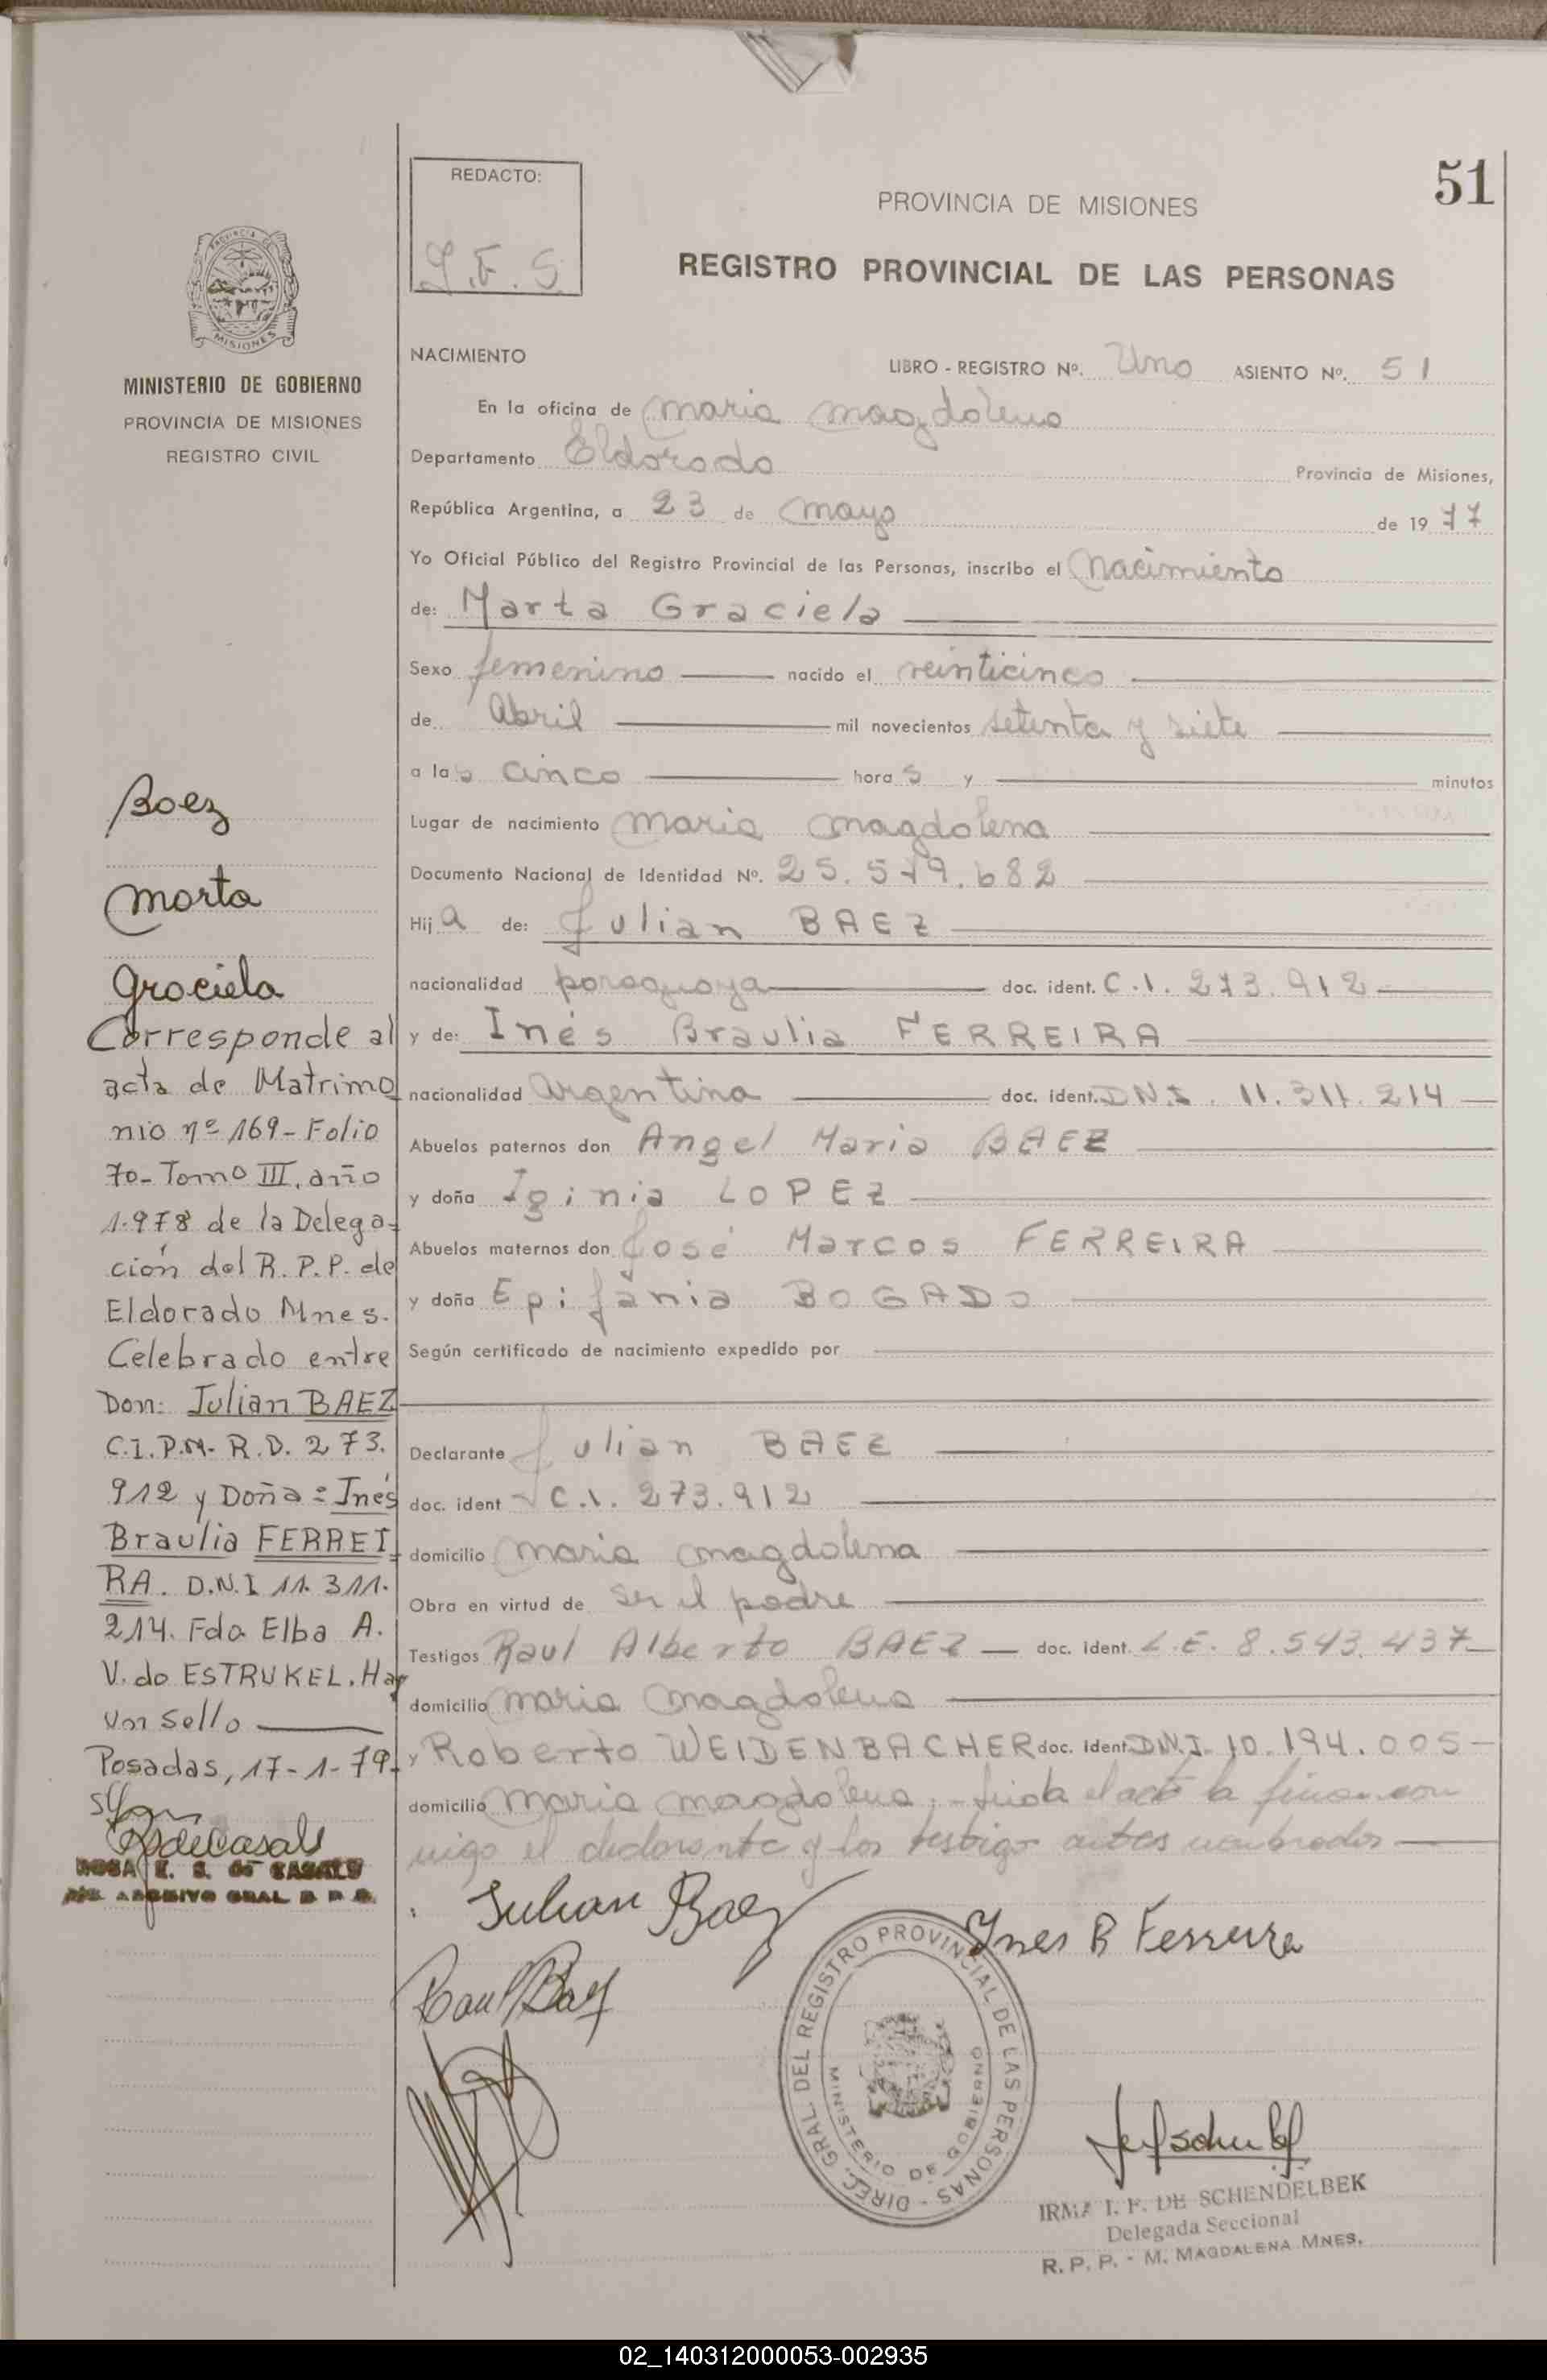 51
REDACTO:
I.F.S.
PROVINCIA DE MISIONES
REGISTRO PROVINCIAL DE LAS PERSONAS
MISIONES
MINISTERIO DE GOBIERNO
PROVINCIA DE MISIONES
REGISTRO CIVIL
NACIMIENTO
LIBRO - REGISTRO Nº. Uno ASIENTO Nº. 51
En la oficina de Maria Magdalena
Departamento Eldorado Provincia de Misiones,
República Argentina, a 23 de Mayo de 19 77
Yo Oficial Público del Registro Provincial de las Personas, inscribo el Nacimiento
de: Marta Graciela
Sexo femenino nacido el veinticinco
de Abril mil novecientos setenta y siete
a las cinco horas y minutos
Lugar de nacimiento Maria Magdalena
Documento Nacional de Identidad Nº. 25.579.682
Hija de: Julian BAEZ
nacionalidad paraguaya doc. ident. C.I. 273.912
y de: Inés Braulia FERREIRA
nacionalidad Argentina doc. ident. D.N.I. 11.311.214
Abuelos paternos don Angel Maria BAEZ
y doña Iginia LOPEZ
Abuelos maternos don José Marcos FERREIRA
y doña Epifania BOGADO
Según certificado de nacimiento expedido por
Declarante Julian BAEZ
doc. ident C.I. 273.912
domicilio Maria Magdalena
Obra en virtud de ser el padre
Testigos Raul Alberto BAEZ doc. ident. L.E. 8.543.437
domicilio Maria Magdalena
y Roberto WEIDENBACHER doc. ident. D.N.I. 10.194.005
domicilio Maria Magdalena.- Leida el acta la firman con
migo el declarante y los testigos antes nombrados
Baez
Marta
Graciela
Corresponde al
acta de Matrimo
nio nº 169- Folio
70- Tomo III, año
1.978 de la Delega-
ción del R.P.P. de
Eldorado Mnes.
Celebrado entre
Don: Julian BAEZ
C.I.P.M- R.D. 273.
912 y Doña: Inés
Braulia FERREI-
RA. D.N.I 11.311.
214. Fdo Elba A.
V. de ESTRUKEL. Hay
un sello
Posadas, 17-1-79.
ROSA E. S. de CASALS
ARCHIVO GRAL R P P
Julian Baez
Ines R Ferreira
Raul Baez
DIREC. GRAL. DEL REGISTRO PROVINCIAL DE LAS PERSONAS -
MINISTERIO DE GOBIERNO
IRMA I. F. DE SCHENDELBEK
Delegada Seccional
R. P. P. - M. MAGDALENA MNES.
02_140312000053-002935